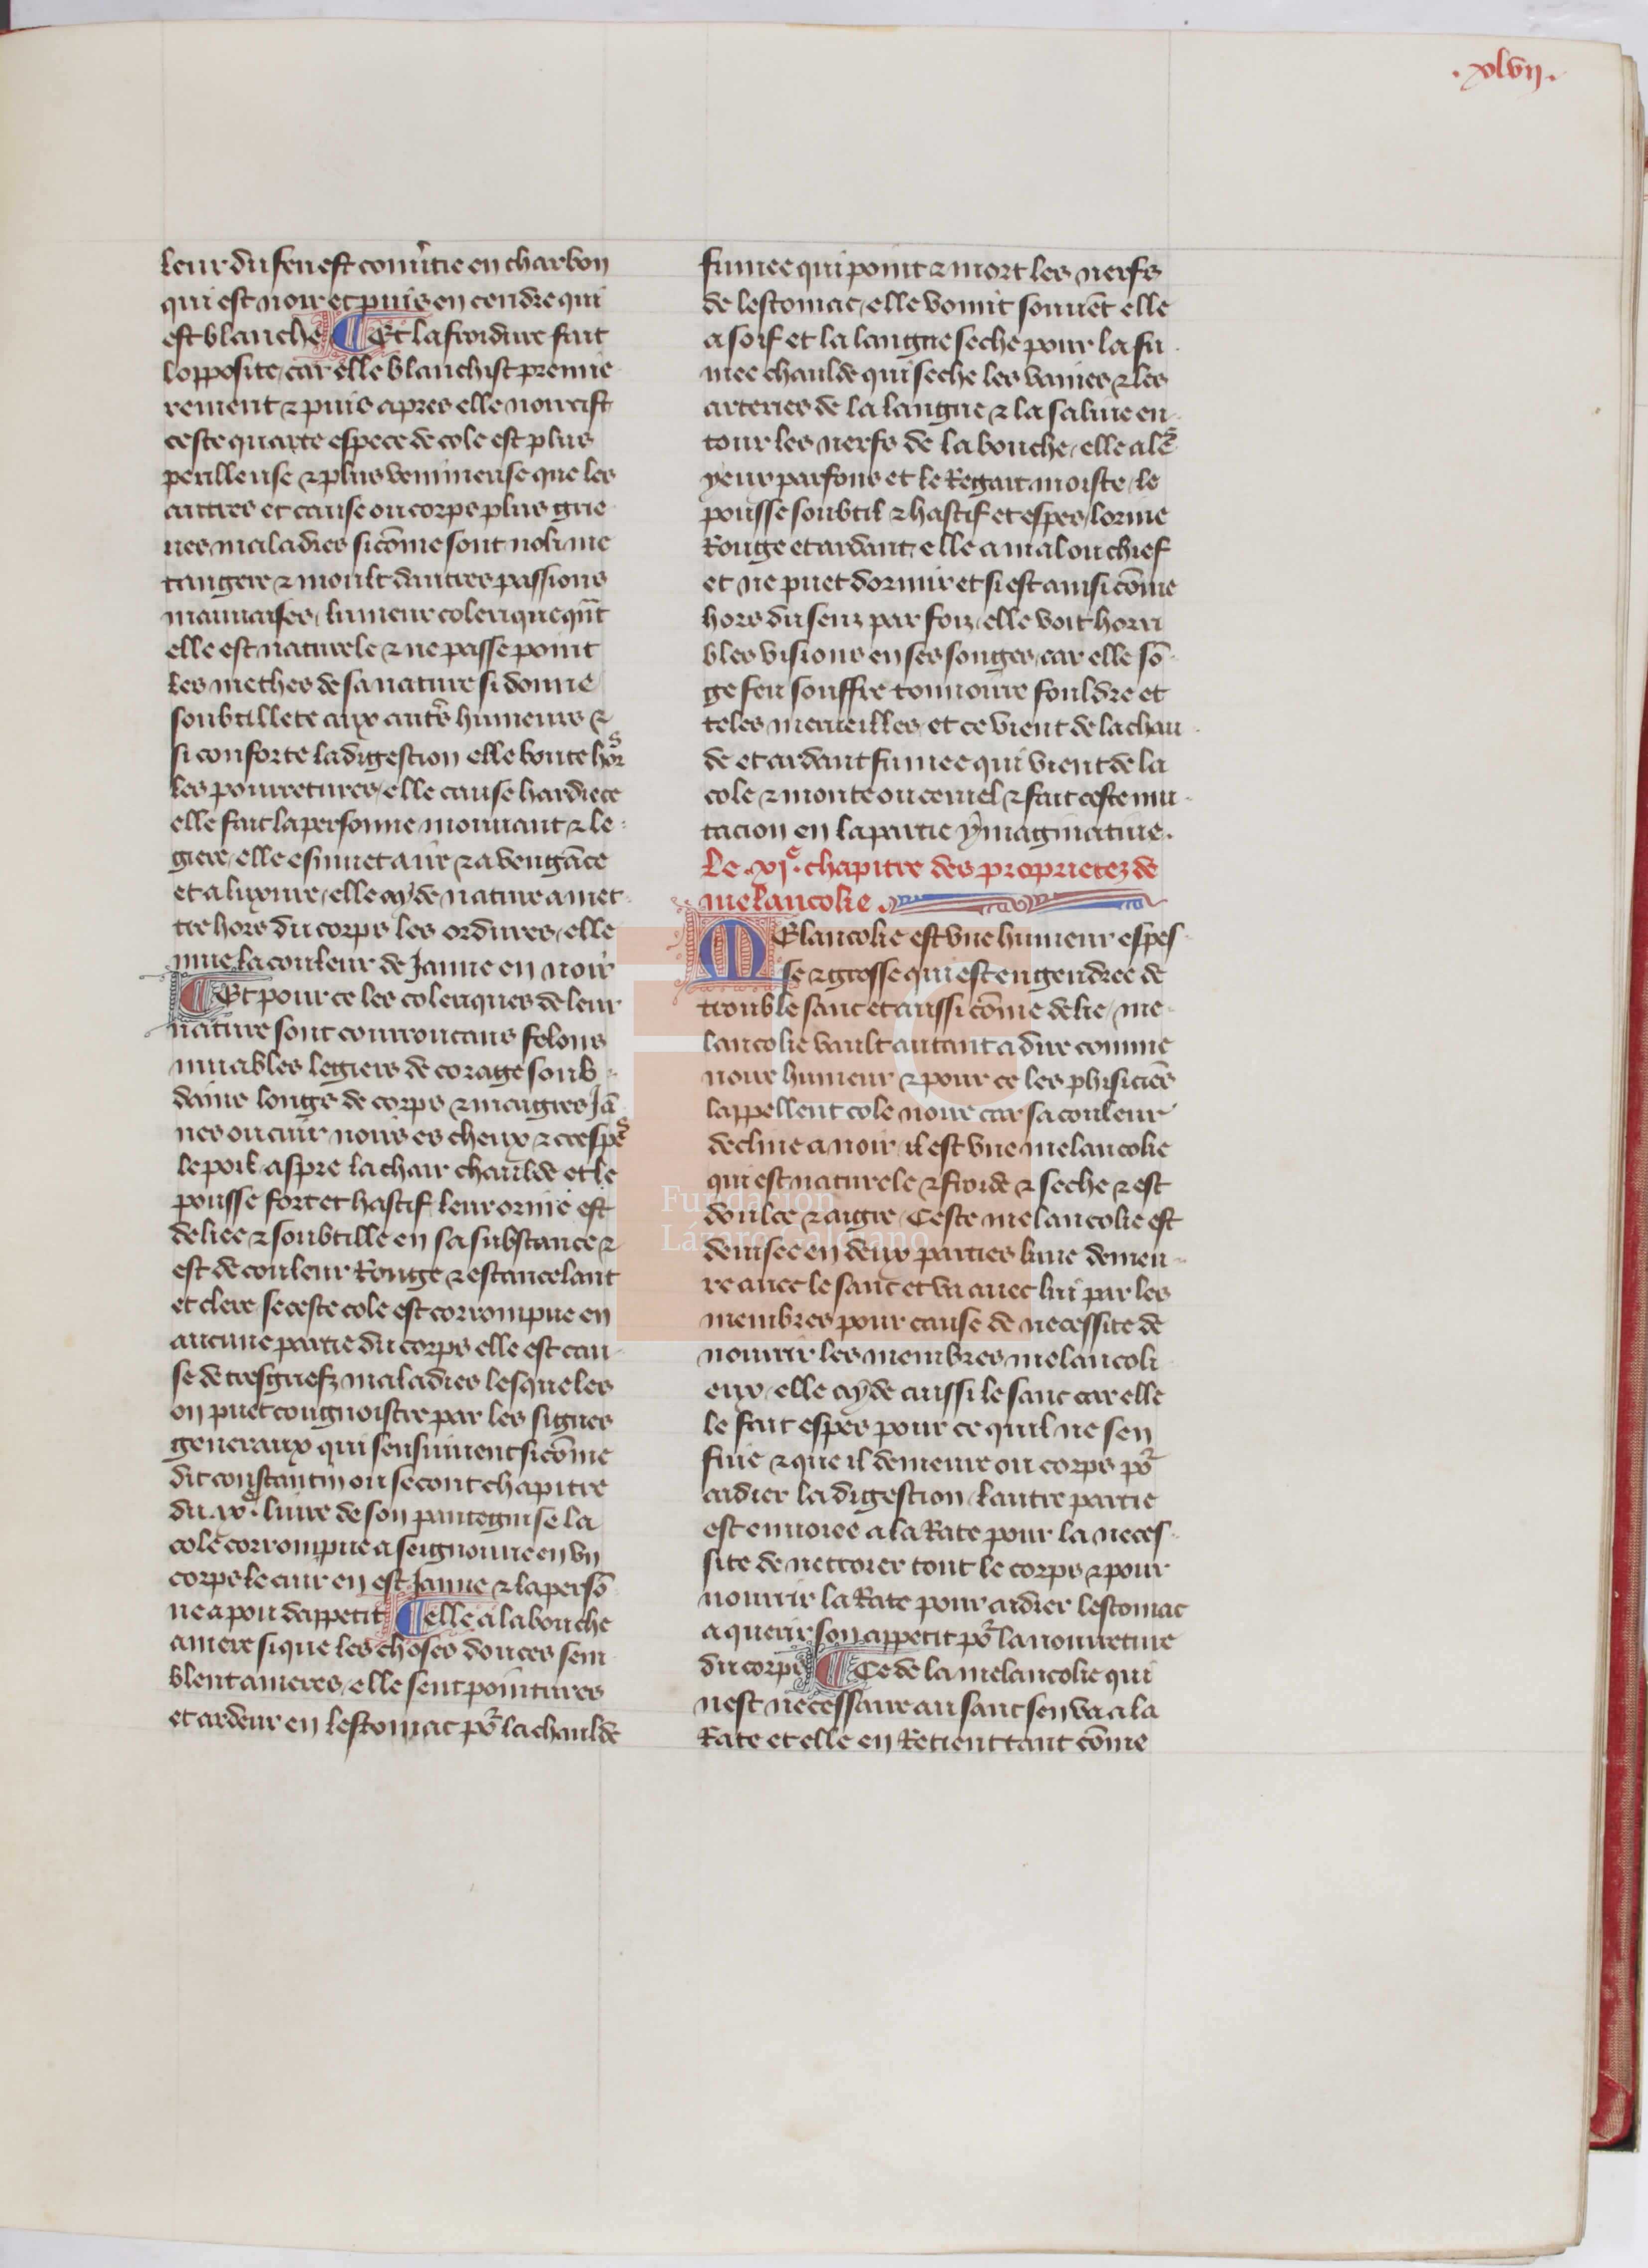 .xlvij.
leur du feu est com̾tie en charbon
qui est noir et puis en cendre qui
est blanche Et la froidure fait
lopposite, car elle blanchist premie
rement ⁊ puis apres elle noircist
ceste quarte espece de cole est plus
perilleuse ⁊ plus venimeuse que les
autres et cause ou corps plus grie
ues maladies sicõme sont noli me
tangere ⁊ moult dautres passions
mauuaises, lumeur colerique qñt
elle est naturele ⁊ ne passe point
les methes de sa nature si donne
soubtillete aux aut̾s humeurs ⁊
si conforte la digestion elle boute hors
les pourretures, elle cause hardiece
elle fait la personne mouuant ⁊ le
giere, elle esmuet a ire ⁊ a vengãce
et a luxure, elle ayde nature a met
tre hors du corps les ordures, elle
mue la couleur de Jaune en noir
Et pour ce les coleriques de leur
nature sont courroucans felons
muables legiers de corage soub
dains longs de corps ⁊ maigres Jã
nes ou cuir noirs es cheux ⁊ crespes
le poil aspre la chair chaulde et le
pousse fort et hastif leur orine est
deliee ⁊ soubtille en sa substance ⁊
est de couleur Rouge ⁊ estancelant
et clere se ceste cole est corrompue en
aucune partie du corps elle est cau
se de tresgriefz maladies lesqueles
on puet congnoistre par les signes
generaux qui sensuiuent sicõme
dit constantin ou secont chapitre
du .ixᵉ. liure de son pantegni se la
cole corrompue a seignourie en vn
corps le cuir en est Jaune ⁊ la persõ
ne a pou dappetit elle a la bouche
amere si que les choses doulces sem
blent ameres, elle sent pointures
et ardeur en lestomac po᷑ la chaulde
fumee qui point ⁊ mort les nerfs
de lestomac, elle vomit souuẽt elle
a soif et la langue seche pour la fu
mee chaulde qui seche les vaines ⁊ les
arteries de la langue ⁊ la saliue en
tour les nerfs de la bouche, elle a les
yeux parfons et le Regart moiste, le
pousse soubtil ⁊ hastif et espes, lorine
Rouge et ardant, elle a mal ou chief
et ne puet dormir et si est ainsi cõme
hors du senz par foiz, elle voit horri
bles visions en ses songes, car elle sõ
ge feu souffre tonnoirre fouldre et
teles merueilles, et ce vient de la chau
de et ardant fumee qui vient de la
cole ⁊ monte ou ceruel ⁊ fait ceste mu
tacion en la partie ymaginatiue.
Le .xjᵉ. chapitre des proprietez de
melancolie.
MElancolie est vne humeur espes
se ⁊ grosse qui est engendree de
trouble sanc et aussi cõme de lie, me
lancolie vault autant a dire comme
noire humeur ⁊ pour ce les phisiciẽs
lappellent cole noire car sa couleur
decline a noir, il est vne melancolie
qui est naturele ⁊ froide ⁊ seche ⁊ est
doulce ⁊ aigre, Ceste melancolie est
deuisee en deux parties lune demeu
re auec le sanc et va auec lui par les
membres pour cause de necessite de
nourrir les membres melancoli
eux, elle ayde aussi le sanc car elle
le fait espes pour ce quil ne sen
fuie ⁊ que il demeure ou corps po᷑
aidier la digestion, lautre partie
est enuoiee a la Rate pour la neces
site de nettoier tout le corps ⁊ pour
nourrir la Rate pour aidier lestomac
a querir son appetit po᷑ la nourreture
du corps Ce de la melancolie qui
nest necessaire au sanc sen va a la
Rate et elle en Retient tant cõme
Fundación
Lázaro Galdiano